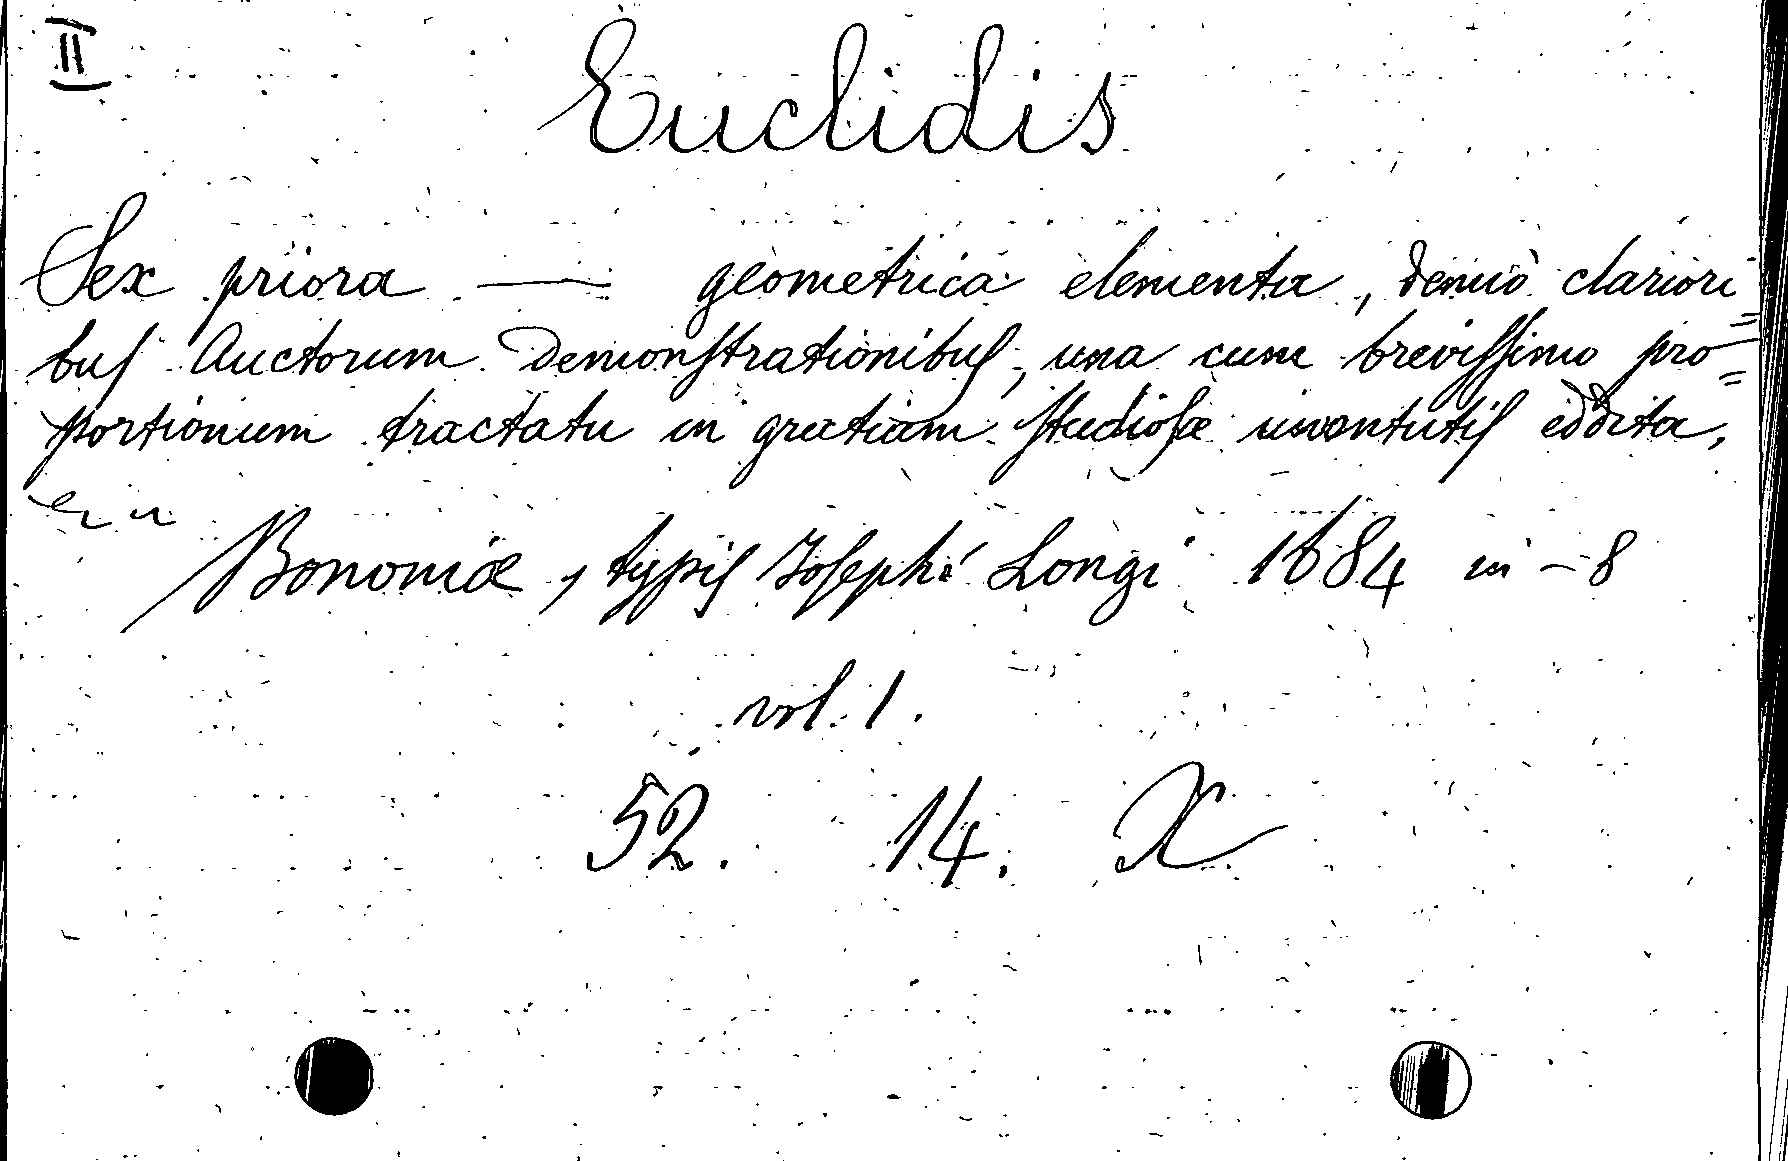 II
Euclidis
Sex priora — geometrica elementa, denuò clariori=
buſ Auctorum Demonſtrationibuſ, una cum breviſſimo pro=
portionum tractatu in gratiam ſtudioſæ iuventutiſ eddita,
Bononiæ, typiſ Ioſephi Longi 1684 in-8
vol. 1.
52. 14. X